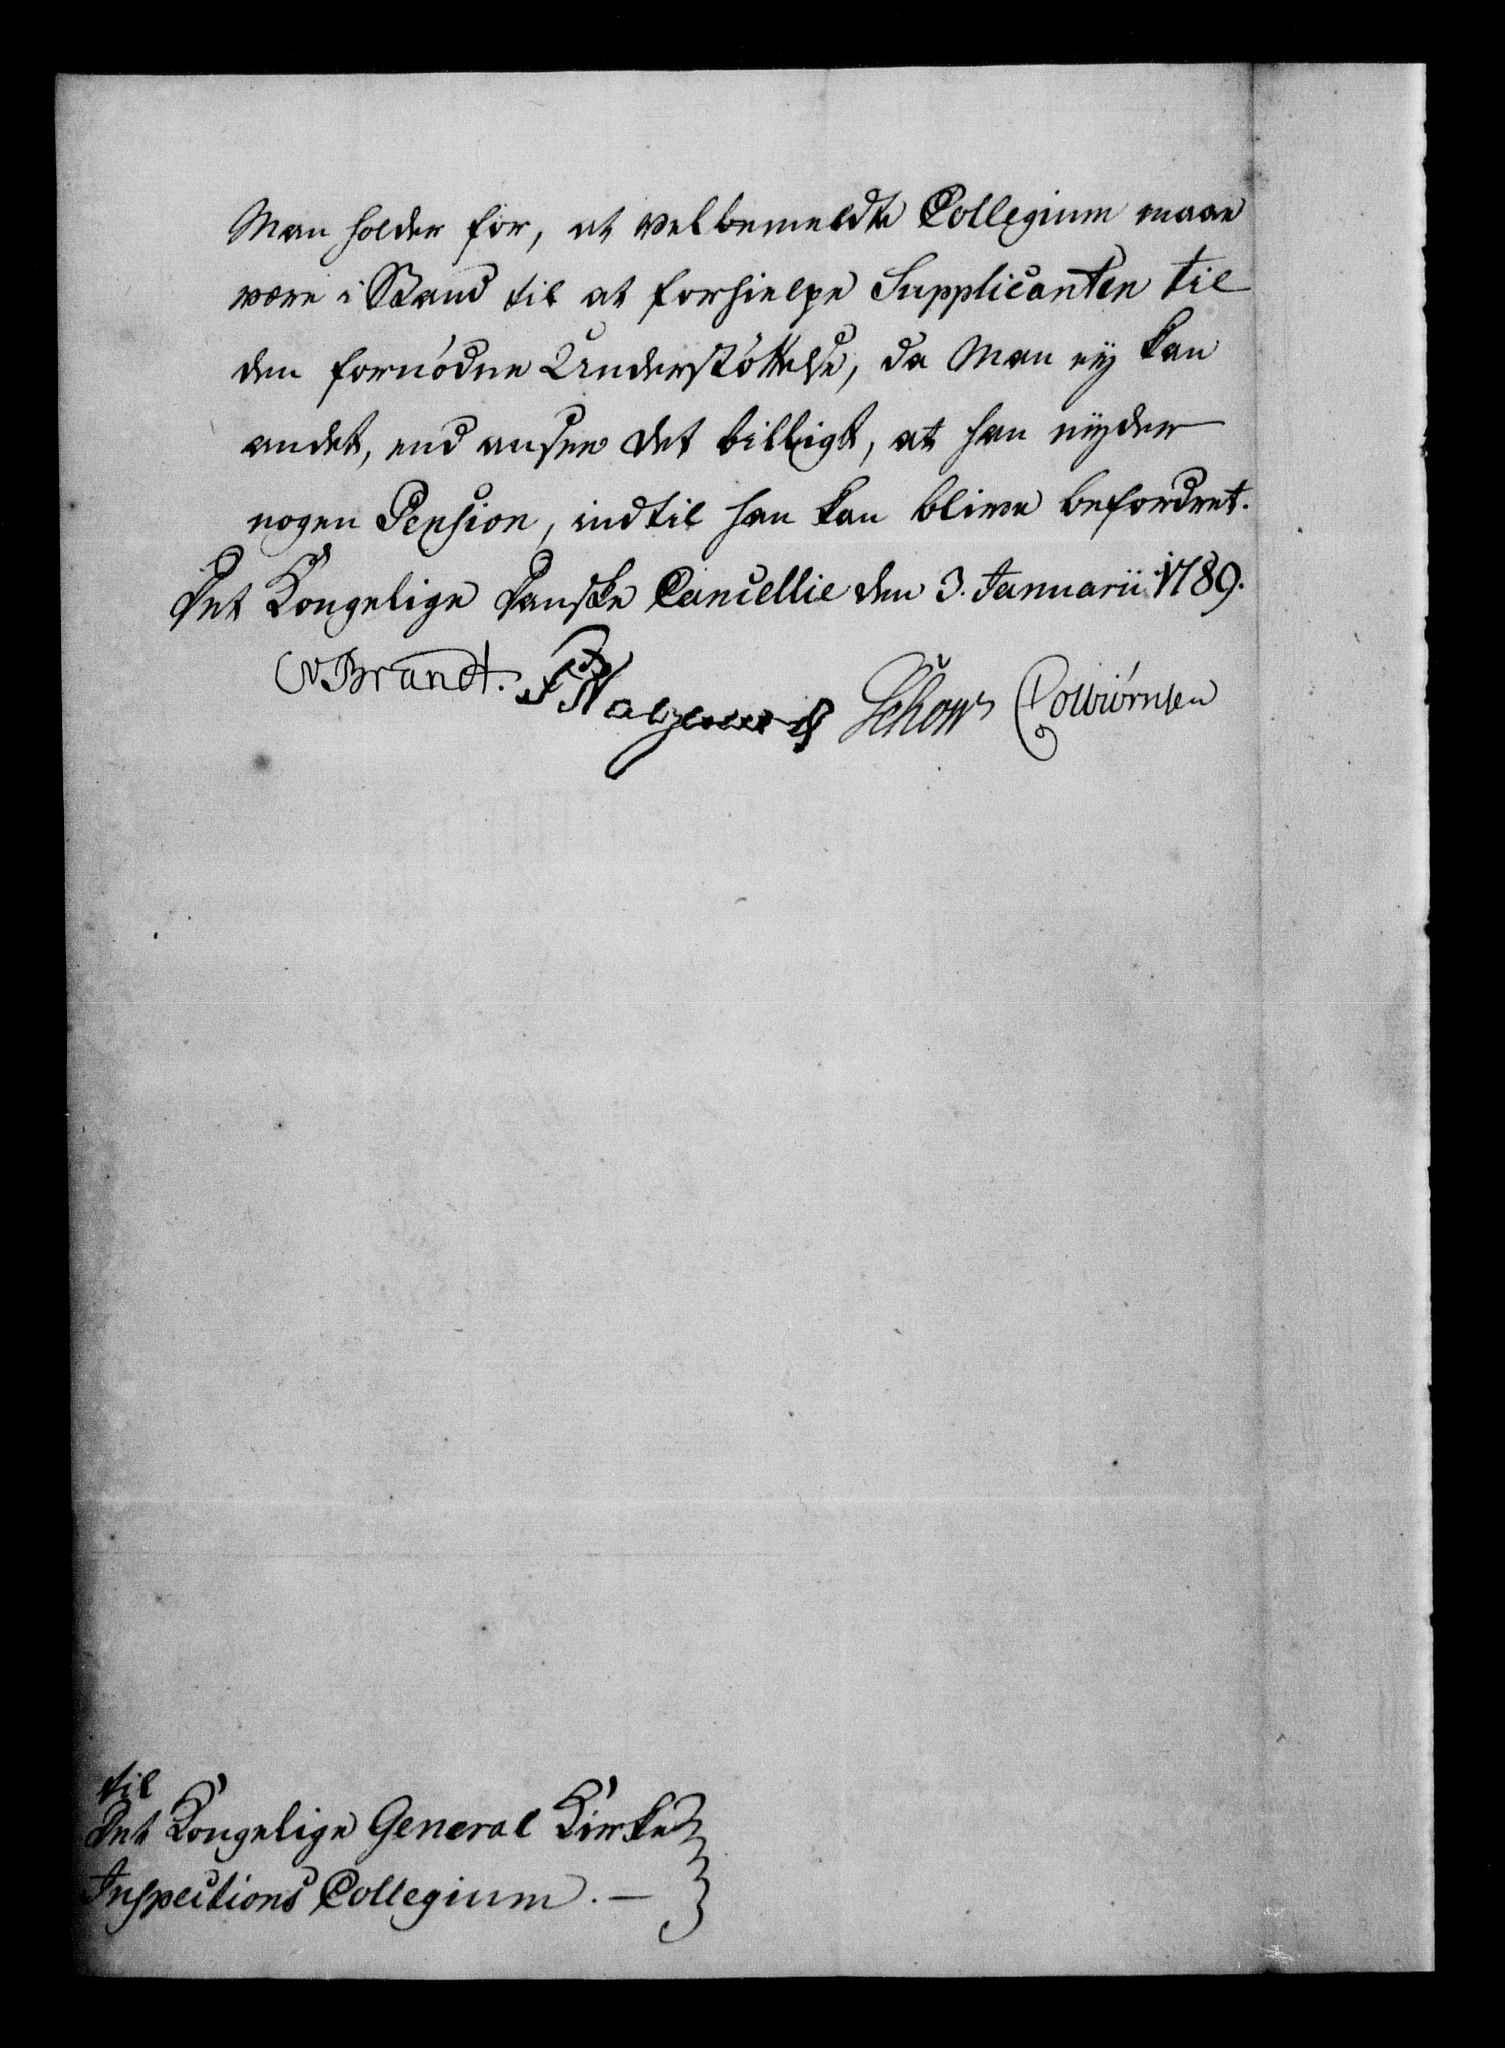 Man holder for, at velbemeldte Collegium maae
være i Stand til at forhielpe Supplicanten til
den fornødne Understøttelse, da Man ey kan
andet, end ansee det billigt, at han nyder
nogen Pension, indtil han kan blive befordret.
Det Kongelige Danske Cancellie den 3. Januarii 1789.
Brandt. Schow Colbiørnsen
til
Det Kongelige General Kirke
Inspections Collegium. —